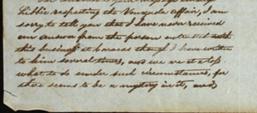 Libbie respecting the Venezuela affair, I am
sorry to tell you that I have never received
any answer from the person intrusted with
this business at Caracas though I have written
to him several times, nor we are at a loss
what to do under such circumstances, for
there seems to be a mystery in it, and